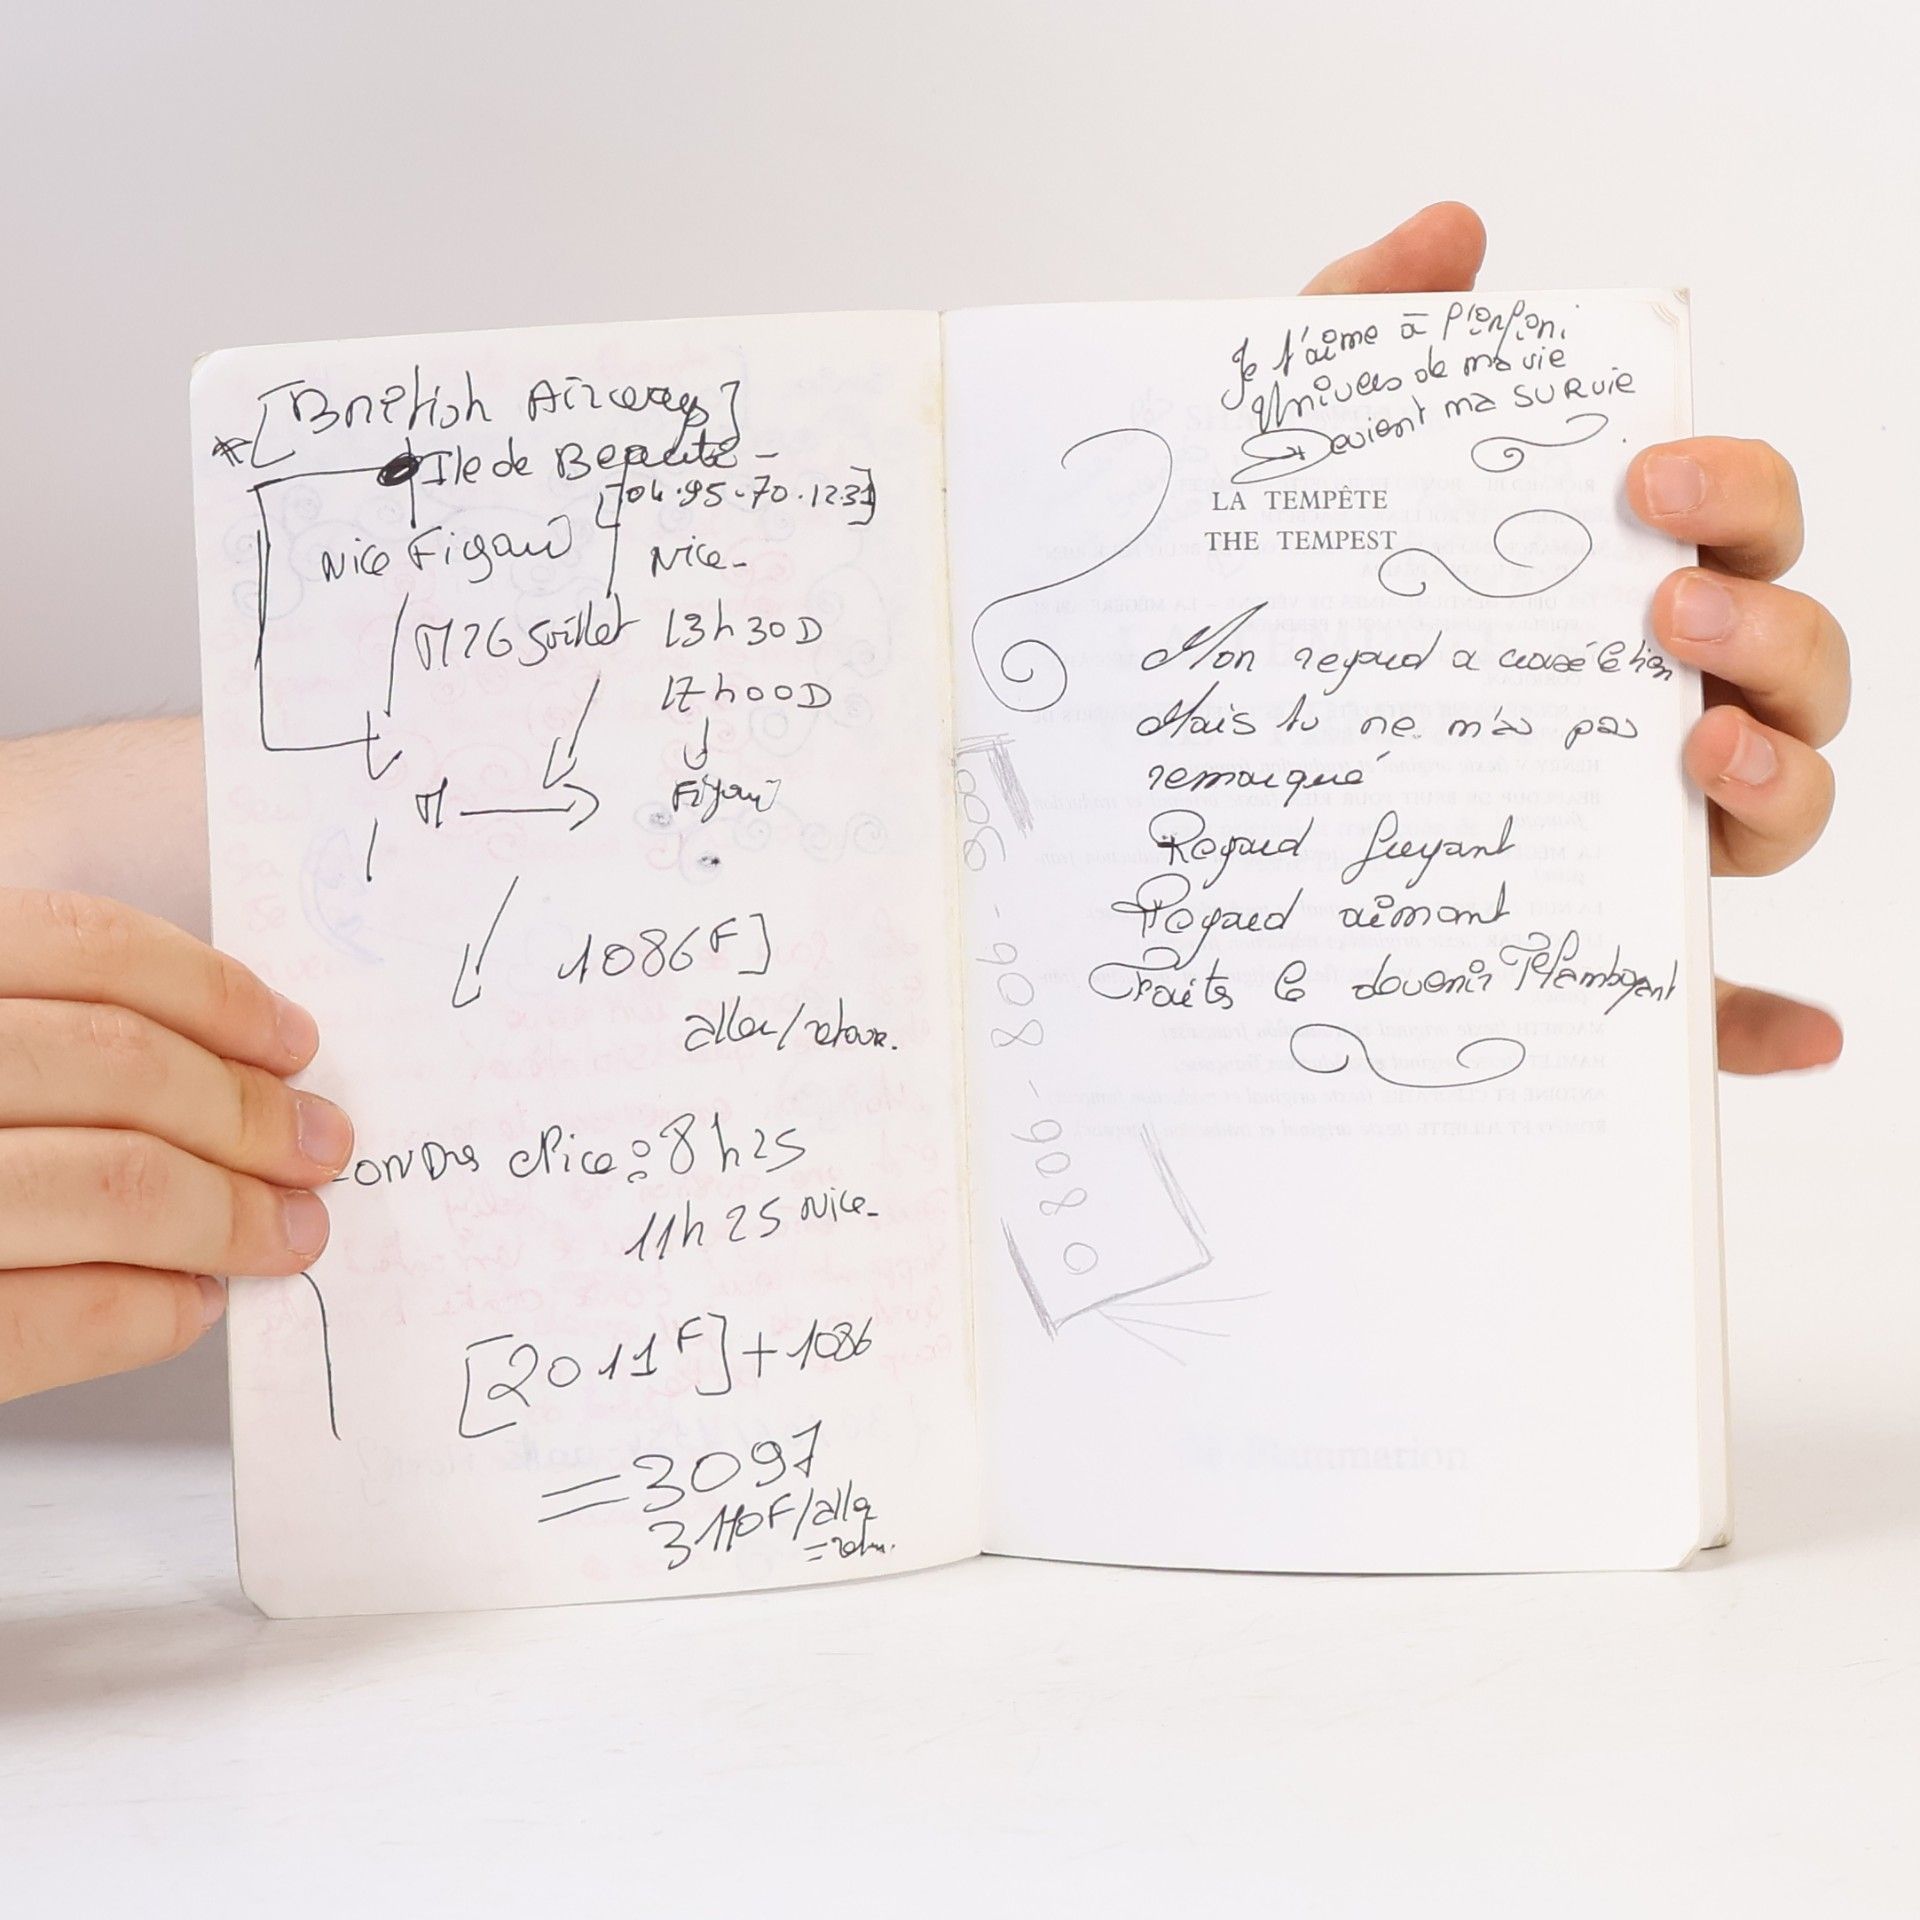 [British Airways]
Ile de Beauté -
[04.95.70.12.31]
Nice Figari
Nice -
M 26 Juillet 13h30 D
17h00 D
M → Figari
1086 F]
aller/retour.
LONDres Nice : 8h25
11h25 Nice -
[2011 F] + 1086
= 3097
3110F/aller
= retour.
Je t'aime à l'infini
Univers de ma vie
Devient ma SURVIE
LA TEMPÊTE
THE TEMPEST
Mon regard a croisé le tien
Mais tu ne m'as pas
remarqué
Regard fuyant
Regard aimant
Faits le devenir Flamboyant
0 806 - 806 - 906